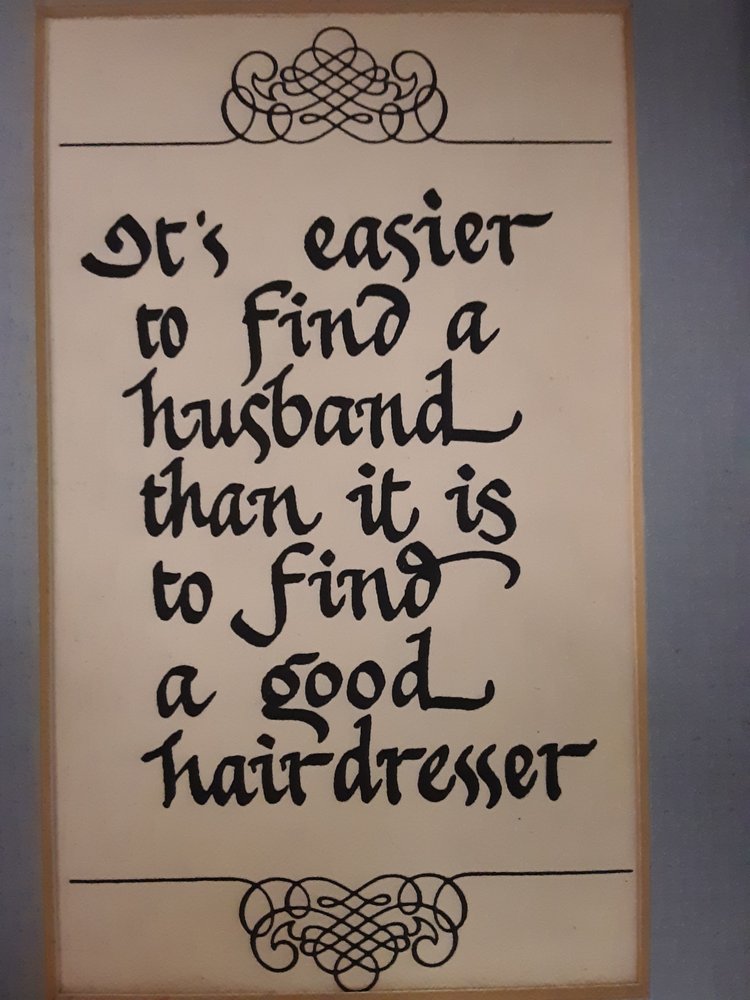 It's easier
to find a
husband
than it is
to find
a good
hairdresser